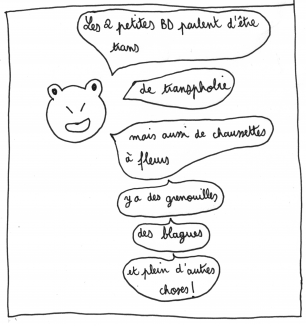 Les 2 petites BD parlent d'être
trans
de transphobie
mais aussi de chaussettes
à fleurs
y a des grenouilles
des blagues
et plein d'autres
choses !